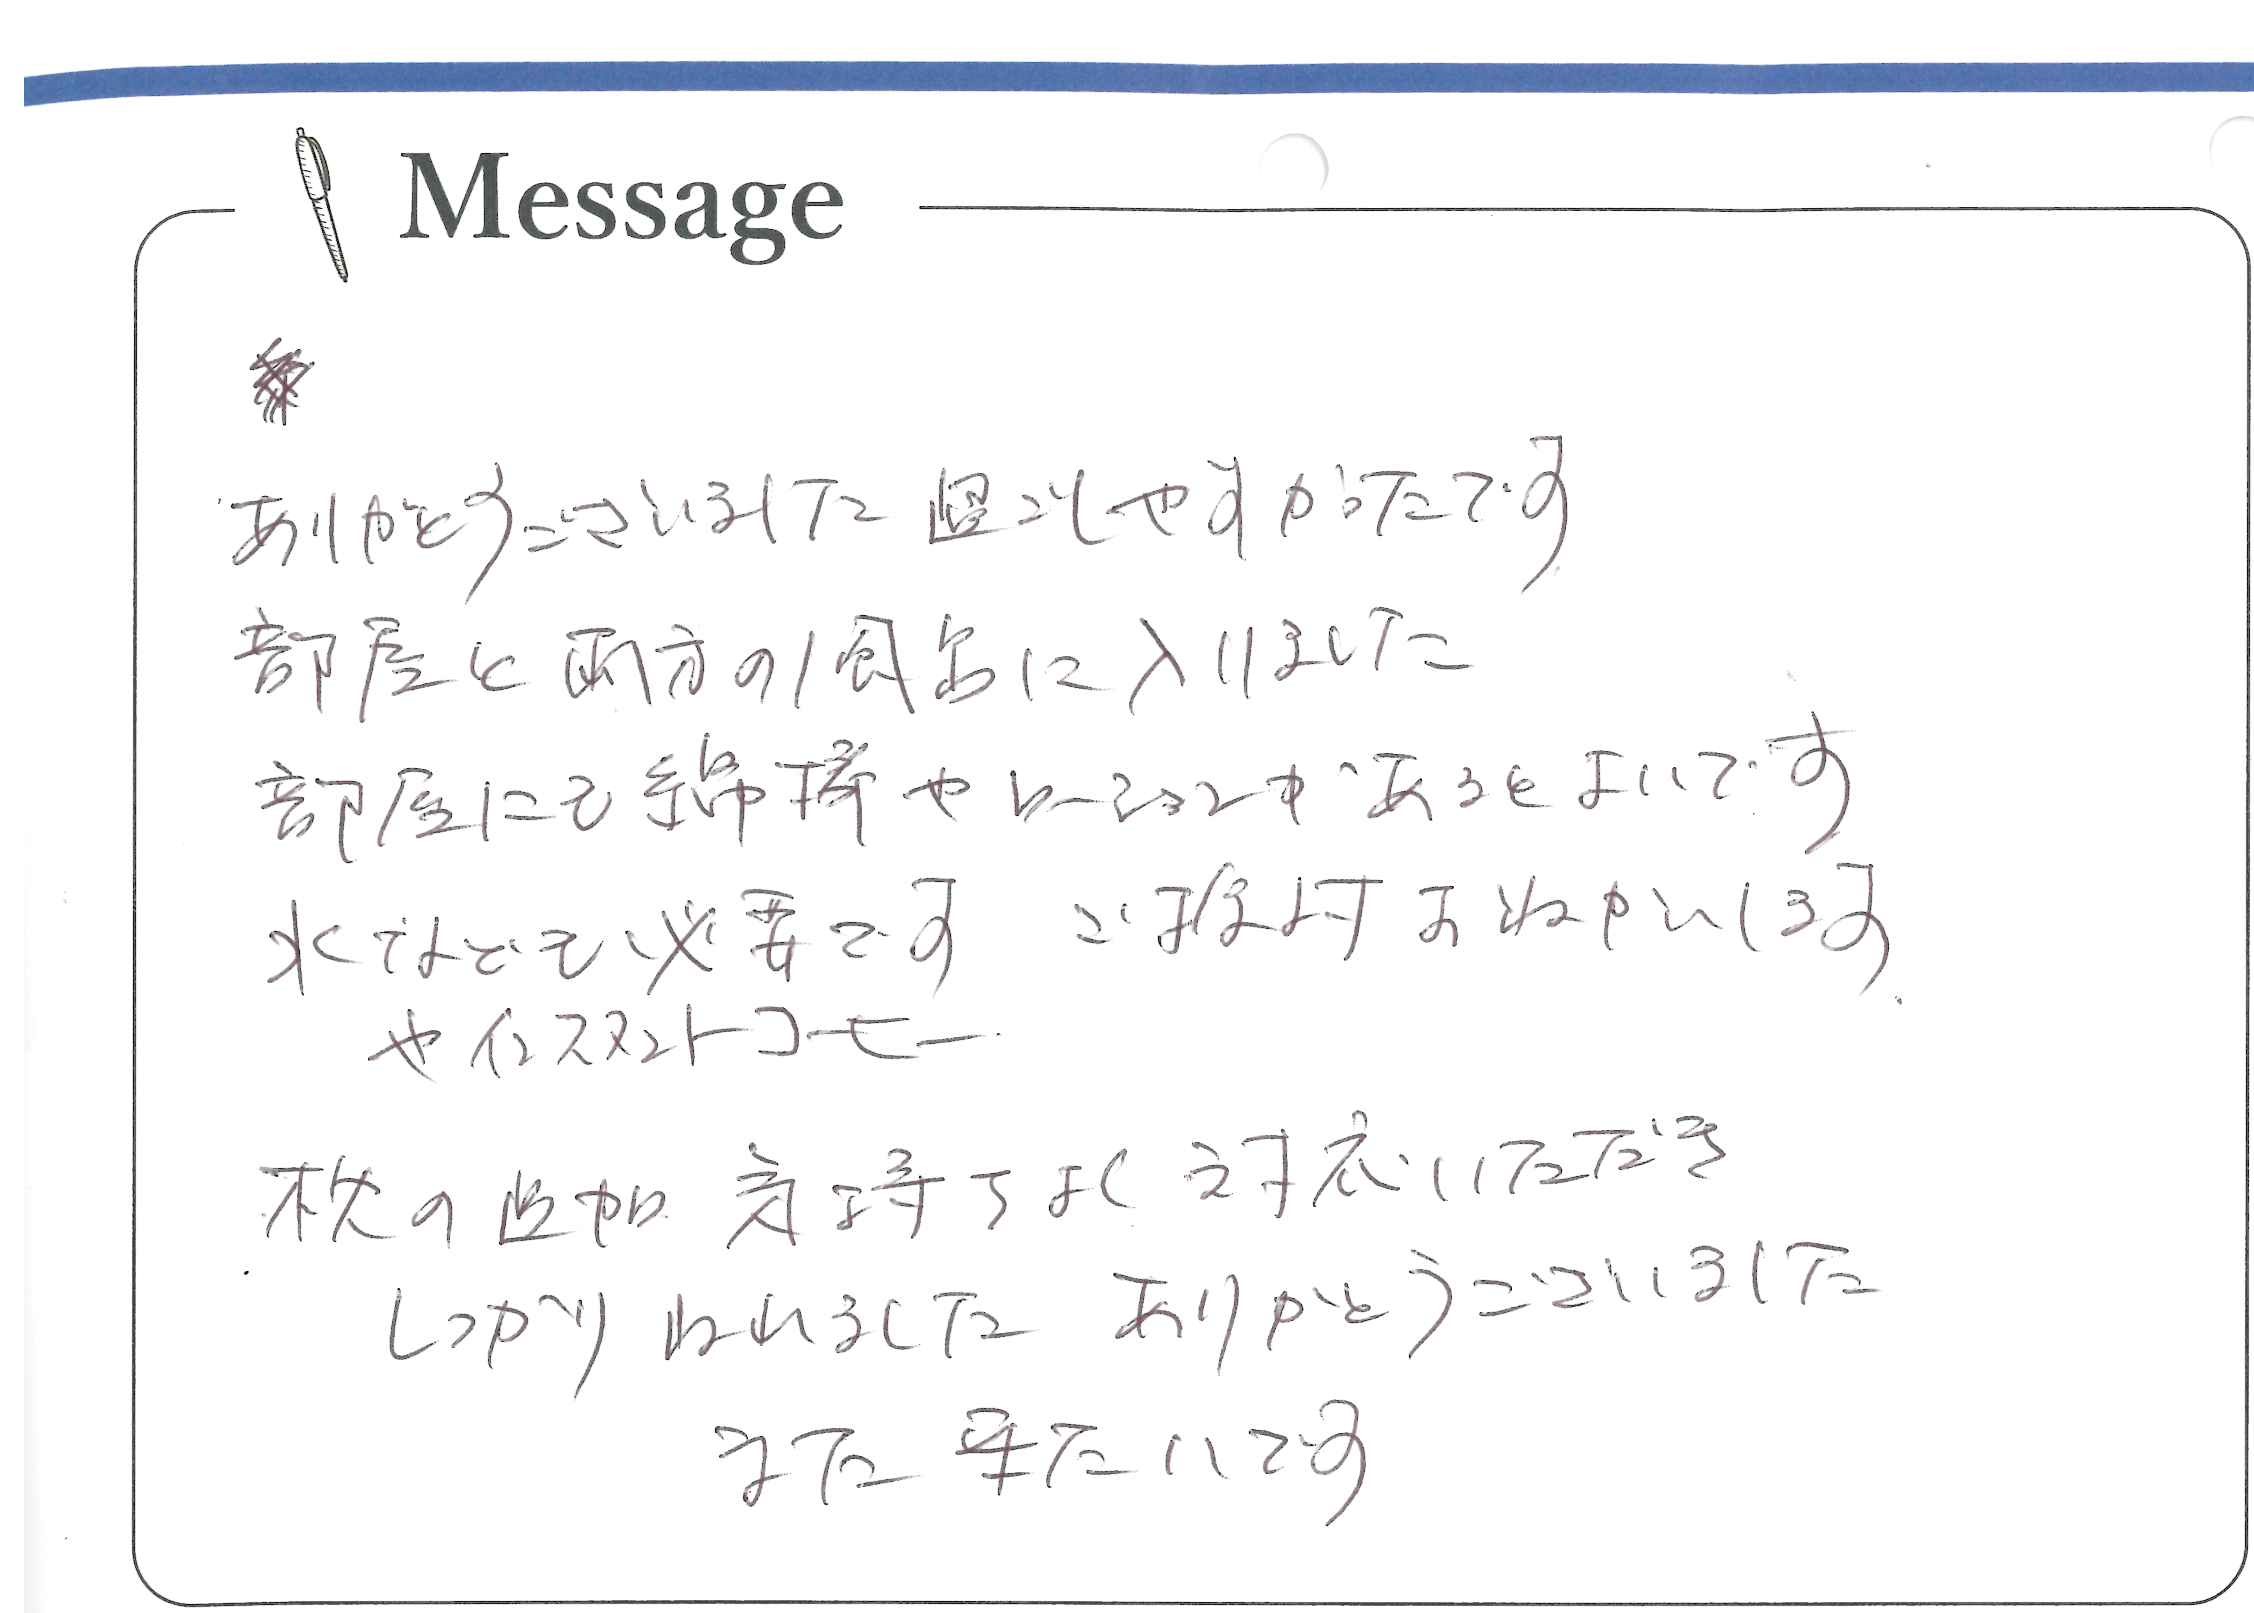 Message
ありがとうございました 過ごしやすかったです
部屋と両方の風呂に入りました
部屋にも綿棒やローションがあるとよいです
水なども必要です ご検討おねがいします
やインスタントコーヒー
枕の追加 気持ちよく対応いただき
しっかりねれました ありがとうございました
また来たいです